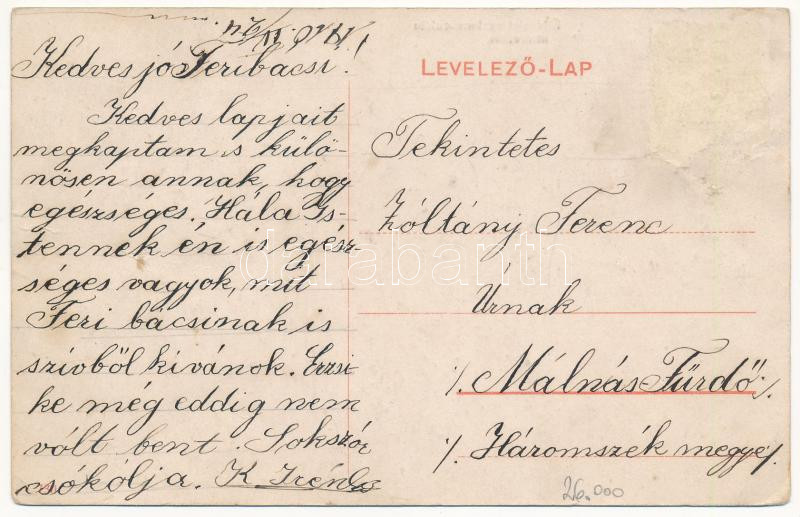 Kedves jó Feribácsi!
Kedves lapjait
megkaptam s külö-
nösen annak, hogy
egészséges. Hála Is-
tennek én is egész-
séges vagyok, mit
Feri bácsinak is
szívből kívánok. Erzsi-
ke még eddig nem
vólt bent. Sokszór
csókólja. K. Irénke
LEVELEZŐ-LAP
Tekintetes
Zóltány Ferenc
Úrnak
Málnás-Fürdő
Háromszék megye
26.000
darabanth